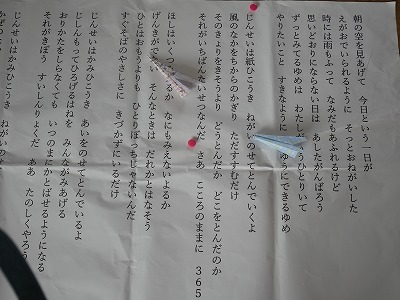 朝の空を見あげて　今日という一日が
えがおでいられるように　そっとおねがいした
時には雨もふって　なみだもあふれるけど
思いどおりにならない日は　あしたがんばろう
ずっとみてるゆめは　わたし　うひとりいて
やりたいこと　すきなように　ゆうにできるゆめ
じんせいは紙ひこうき　ねが　のせてとんでいくよ
風のなかをちからのかぎり　ただすすむだけ
そのきょりをきそうより　どうとんだか　どこをとんだのか
それがいちばんたいせつなんだ　さあ　こころのままに　365
ほしはいくつ　るか　なにもみえないよるか
げんきが　ない　そんなときは　だれかとはなそう
ひとはおもうよりも　ひとりぼっちじゃないんだ
すぐそばのやさしさに　きづかずにいるだけ
じんせいはかみひこうき　あいをのせてとんでいるよ
じしんもってひろげるはねを　みんながみあげる
おりかたをしらなくても　いつのまにかとばせるようになる
それがきぼう　すいしんりょくだ　ああ　たのしくやろう
じんせいはかみひこうき　ねがいの